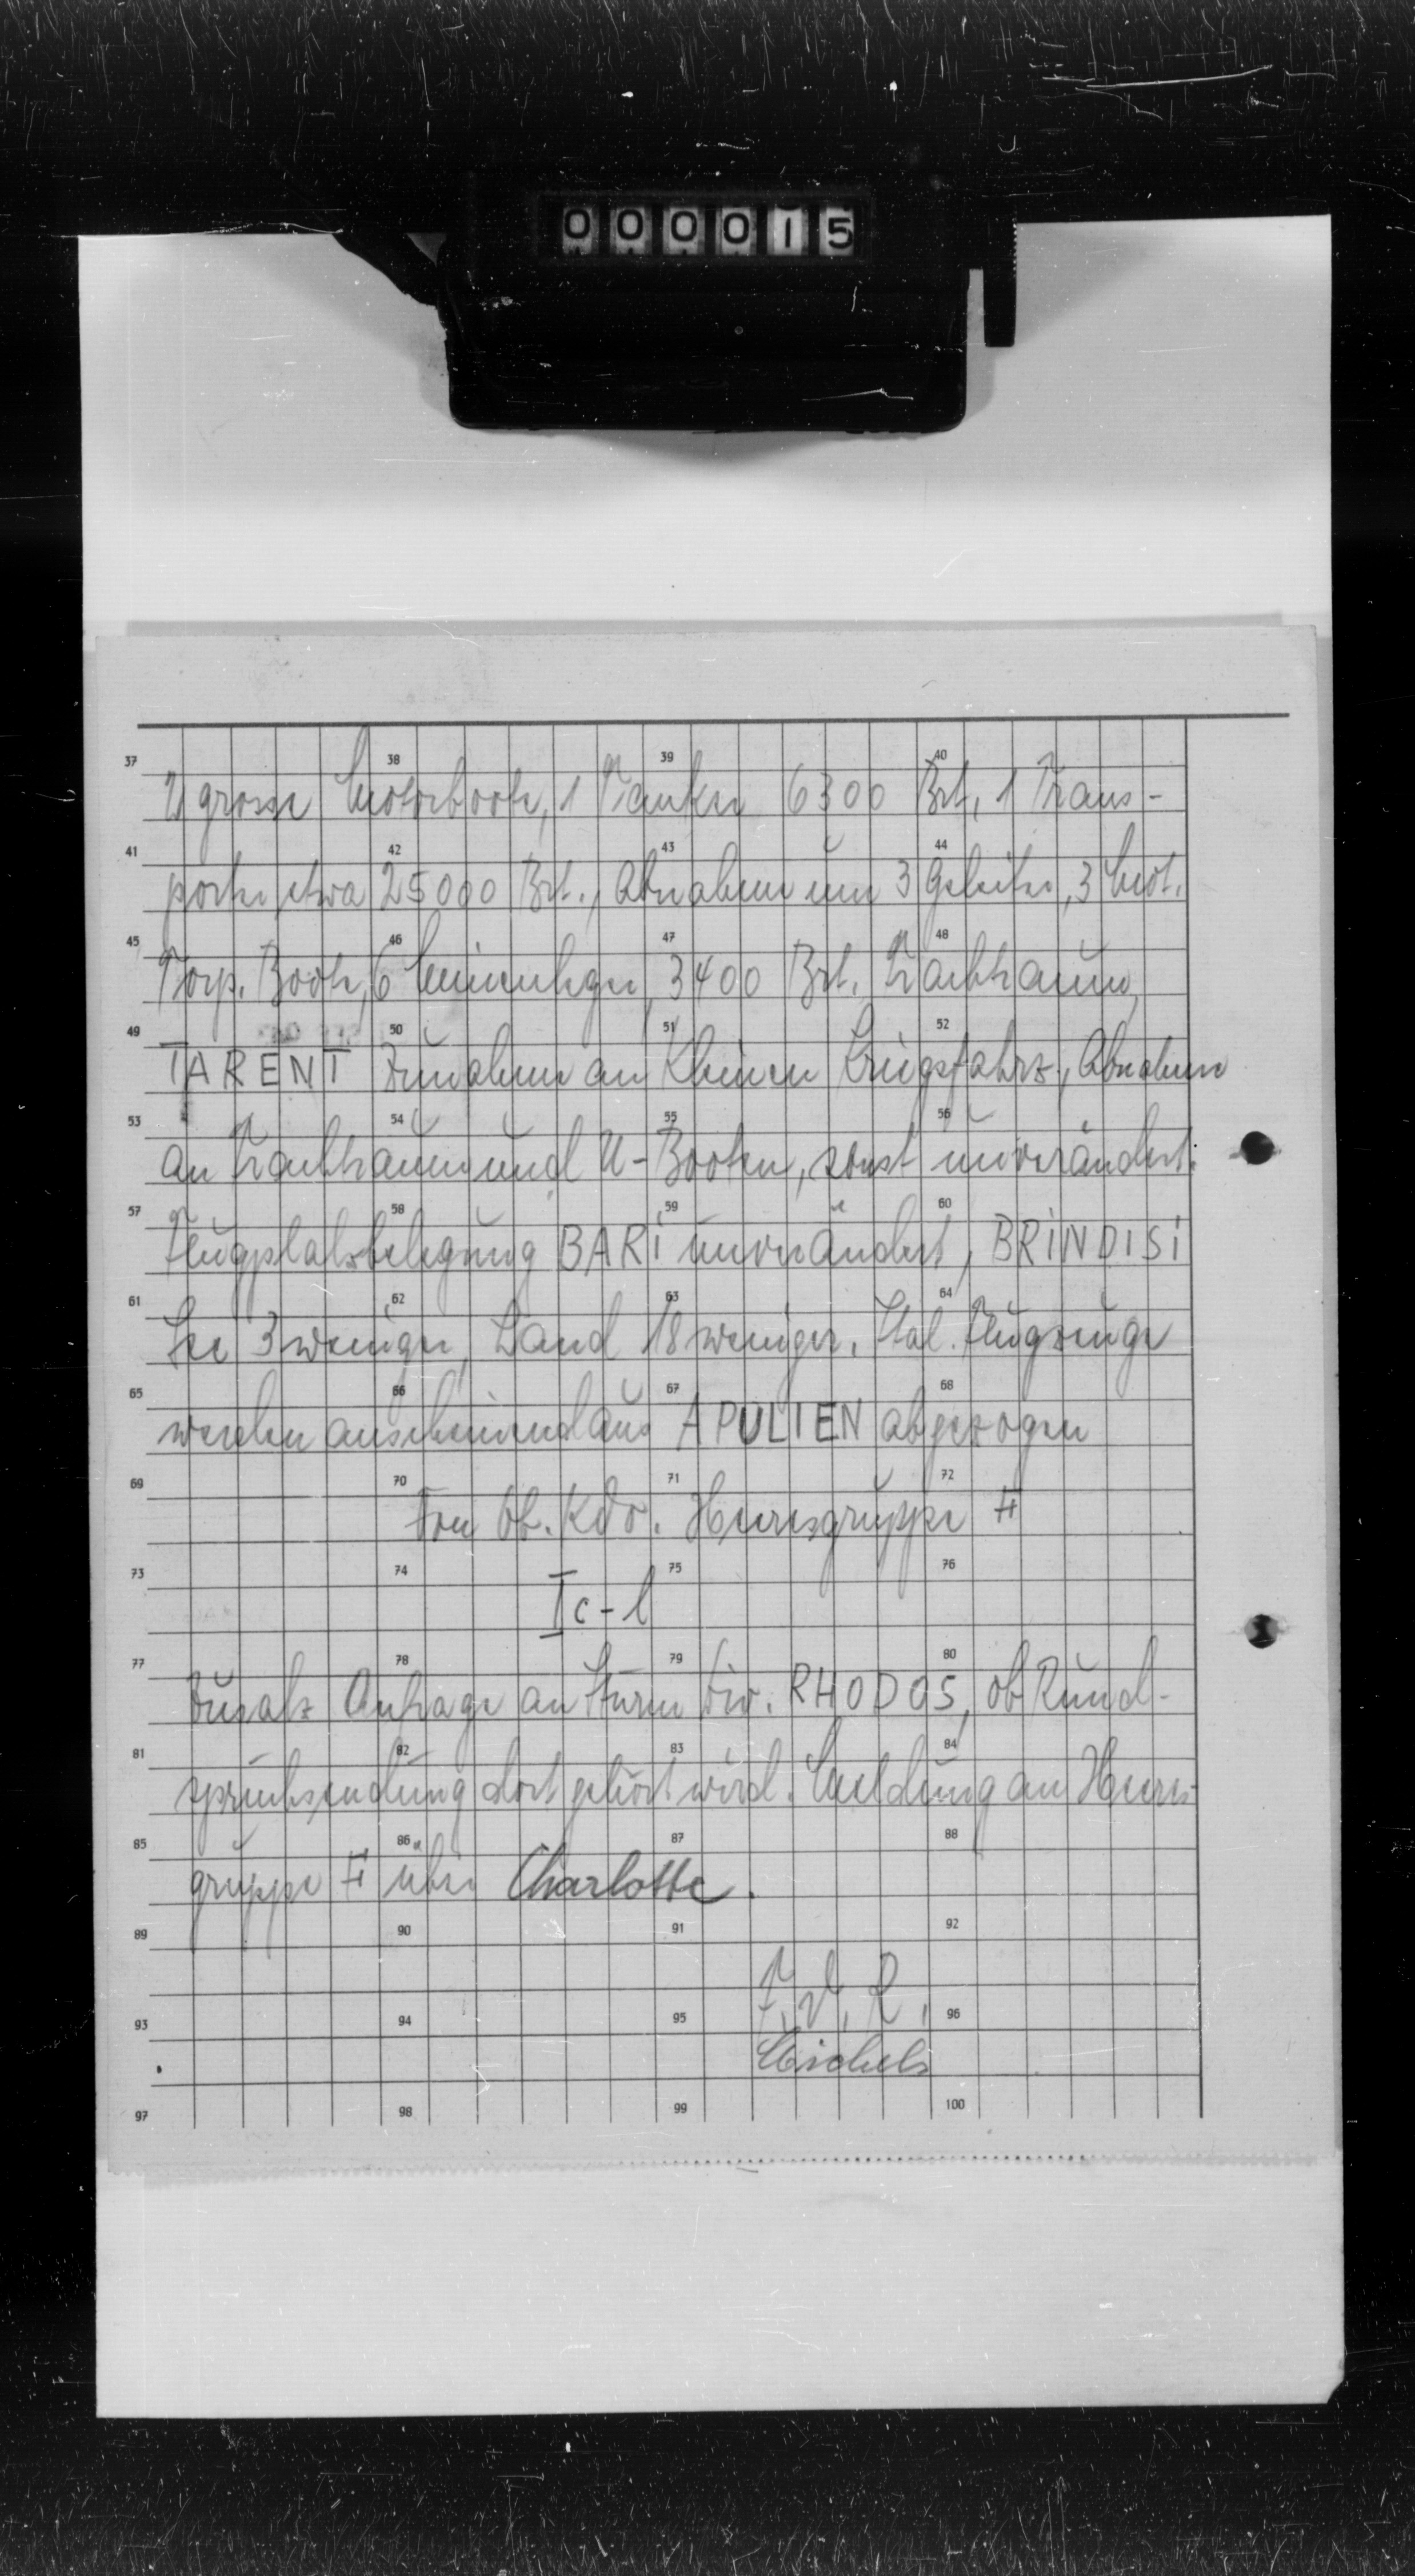 000015
37 38 39 40
2 grosse Motorboote, 1 Tanker 6300 Brt, 1 Trans-
41 42 43 44
porter etwa 25000 Brt., Abnahme um 3 Geleiter, 3 Mot.
45 46 47 48
Torp. Boote, 6 Minenleger, 3400 Brt. Frachtraum,
49 50 51 52
TARENT Zunahme an kleinen Kriegsfahrz., Abnahme
53 54 55 56
an Frachtraum und U-Booten, sonst unverändert.
57 58 59 60
Flugplatzbelegung BARI unverändert, BRINDISI
61 62 63 64
See 3 weniger, Land 18 weniger. Ital. Flugzeuge
65 66 67 68
werden anscheinend aus APULIEN abgezogen
69 70 71 72
Von Ob. Kdo. Heeresgruppe F
73 74 75 76
Ic-l
77 78 79 80
Zusatz Anfrage an Sturm Div. RHODOS, ob Rund-
81 82 83 84
spruchsendung dort gehört wird. Meldung an Heeres-
85 86 87 88
gruppe F über Charlotte.
89 90 91 92
F. d. R.
93 94 95 96
Michels
97 98 99 100